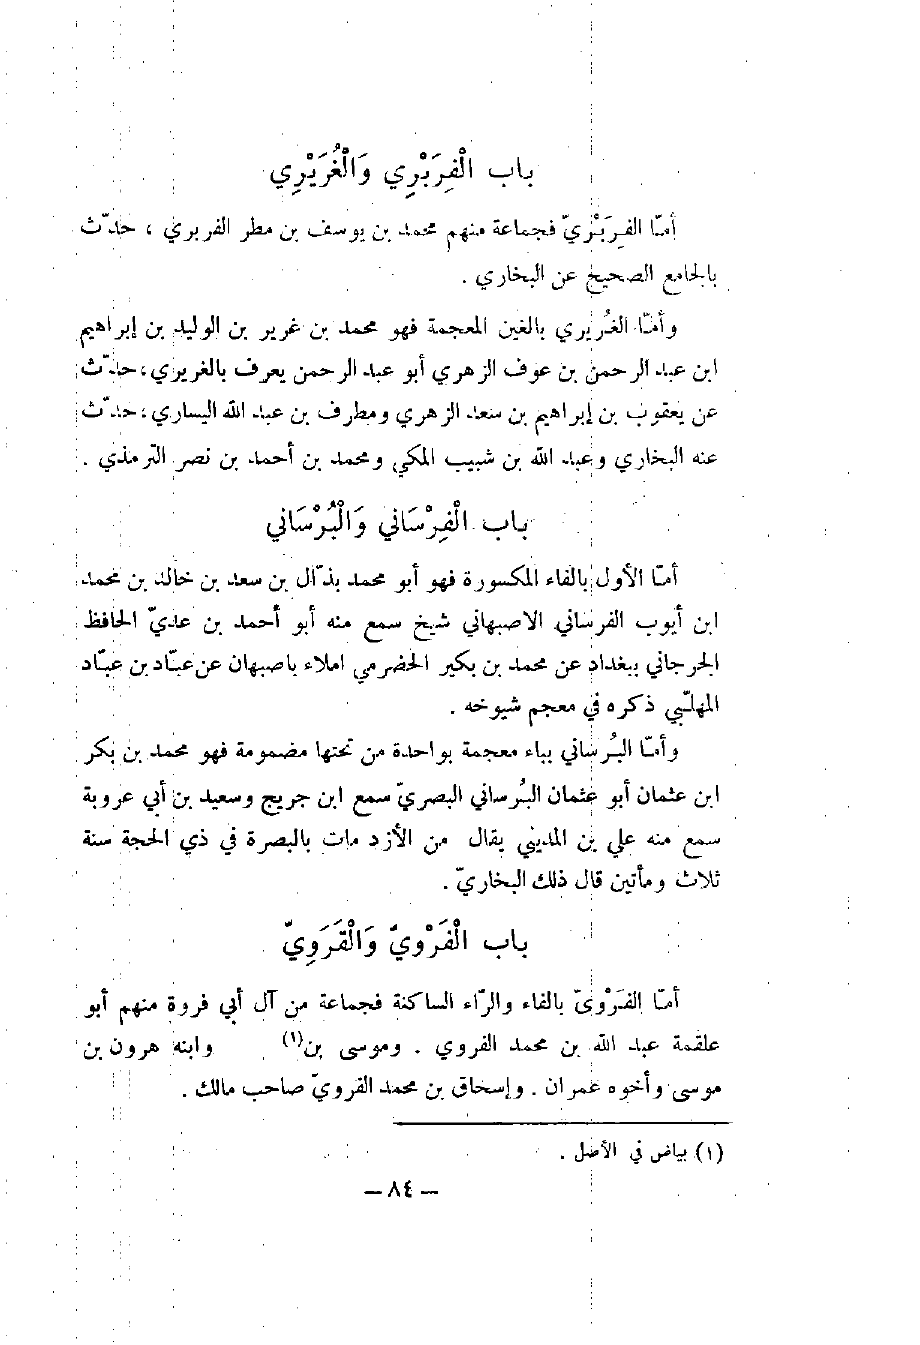 باب الْفِرَبْرِي وَالْغُرَيْرِي
أمّا الفِرَبْرِيّ فجماعة منهم محمد بن يوسف بن مطر الفربري ، حدّث
بالجامع الصحيح عن البخاري .
وأمّا الغُرَيري بالغين المعجمة فهو محمد بن غرير بن الوليد بن إبراهيم
ابن عبد الرحمن بن عوف الزهري أبو عبد الرحمن يعرف بالغريري ، حدّث
عن يعقوب بن إبراهيم بن سعد الزهري ومطرف بن عبد الله اليساري ، حدّث
عنه البخاري وعبد الله بن شبيب المكي ومحمد بن أحمد بن نصر الترمذي .
باب الْفِرْسَاني وَالْبُرْسَاني
أمّا الأول بالفاء المكسورة فهو أبو محمد بذّال بن سعد بن خالد بن محمد
ابن أيوب الفرساني الاصبهاني شيخ سمع منه أبو أحمد بن عديّ الحافظ
الجرجاني ببغداد عن محمد بن بكير الحضرمي املاء باصبهان عن عبّاد بن عبّاد
المهلّبي ذكره في معجم شيوخه .
وأمّا البُرساني بباء معجمة بواحدة من تحتها مضمومة فهو محمد بن بكر
ابن عثمان أبو عثمان البُرساني البصريّ سمع ابن جريج وسعيد بن أبي عروبة
سمع منه علي بن المديني يقال من الأزد مات بالبصرة في ذي الحجة سنة
ثلاث ومأتين قال ذلك البخاريّ .
باب الْفَرْوِيّ وَالْقَرَوِيّ
أمّا الفَرْوِيّ بالفاء والرّاء الساكنة فجماعة من آل أبي فروة منهم أبو
علقمة عبد الله بن محمد الفروي . وموسى بن(١) وابنه هرون بن
موسى وأخوه عمران . وإسحاق بن محمد الفرويّ صاحب مالك .
(١) بياض في الأصل .
– ٨٤ –